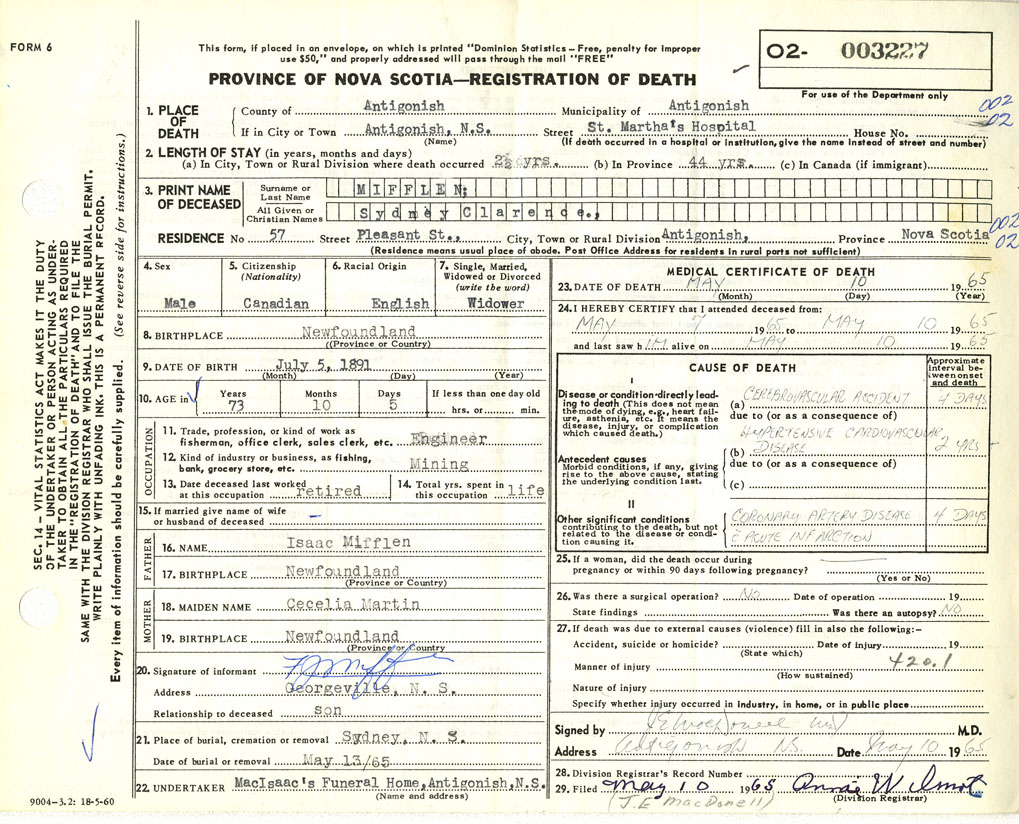 FORM 6
This form, if placed in an envelope, on which is printed "Dominion Statistics – Free, penalty for improper
use $50," and properly addressed will pass through the mail "FREE"
PROVINCE OF NOVA SCOTIA—REGISTRATION OF DEATH
02- 003227
For use of the Department only
002
02
1. PLACE OF DEATH
County of Antigonish Municipality of Antigonish
If in City or Town Antigonish, N.S. Street St. Martha's Hospital House No.
(Name) (If death occurred in a hospital or institution, give the name instead of street and number)
2. LENGTH OF STAY (in years, months and days)
(a) In City, Town or Rural Division where death occurred 2½ yrs. (b) In Province 44 yrs. (c) In Canada (if immigrant)
3. PRINT NAME OF DECEASED
Surname or Last Name MIFFLEN;
All Given or Christian Names Sydney Clarence.,
002
02
RESIDENCE No 57 Street Pleasant St., City, Town or Rural Division Antigonish, Province Nova Scotia
(Residence means usual place of abode. Post Office Address for residents in rural parts not sufficient)
4. Sex
Male
5. Citizenship
(Nationality)
Canadian
6. Racial Origin
English
7. Single, Married,
Widowed or Divorced
(write the word)
Widower
8. BIRTHPLACE Newfoundland
((Province or Country)
9. DATE OF BIRTH July 5, 1891
(Month) (Day) (Year)
10. AGE in
Years Months Days If less than one day old
73 10 5 hrs. or min.
OCCUPATION
11. Trade, profession, or kind of work as
fisherman, office clerk, sales clerk, etc. Engineer
12. Kind of industry or business, as fishing,
bank, grocery store, etc. Mining
13. Date deceased last worked
at this occupation retired
14. Total yrs. spent in
this occupation life
15. If married give name of wife
or husband of deceased –
FATHER
16. NAME Isaac Mifflen
17. BIRTHPLACE Newfoundland
(Province or Country)
MOTHER
18. MAIDEN NAME Cecelia Martin
19. BIRTHPLACE Newfoundland
(Province or Country
20. Signature of informant
Address Georgeville, N. S.
Relationship to deceased son
21. Place of burial, cremation or removal Sydney, N. S.
Date of burial or removal May 13/65
22. UNDERTAKER MacIsaac's Funeral Home, Antigonish, N.S.
(Name and address)
MEDICAL CERTIFICATE OF DEATH
23. DATE OF DEATH MAY 10 1965
(Month) (Day) (Year)
24. I HEREBY CERTIFY that I attended deceased from:
MAY 7 1965 to MAY 10 1965
and last saw hIM alive on MAY 10 1965
CAUSE OF DEATH
Approximate
interval be-
tween onset
and death
I
Disease or condition directly lead-
ing to death (This does not mean
the mode of dying, e.g., heart fail-
ure, asthenia, etc. It means the
disease, injury, or complication
which caused death.)
(a) CEREBROVASCULAR ACCIDENT 4 DAYS
due to (or as a consequence of)
HYPERTENSIVE CARDIOVASCULAR
(b) DISEASE 2 YRS –
due to (or as a consequence of)
(c)
Antecedent causes
Morbid conditions, if any, giving
rise to the above cause, stating
the underlying condition last.
II
Other significant conditions
contributing to the death, but not
related to the disease or condi-
tion causing it.
CORONARY ARTERY DISEASE 4 DAYS
c ACUTE INFARCTION
25. If a woman, did the death occur during
pregnancy or within 90 days following pregnancy?
(Yes or No)
26. Was there a surgical operation? No Date of operation 19
State findings Was there an autopsy? NO
27. If death was due to external causes (violence) fill in also the following:–
Accident, suicide or homicide? Date of injury 19
(State which)
420.1
Manner of injury
(How sustained)
Nature of injury
Specify whether injury occurred in industry, in home, or in public place
Signed by J E MacDonell MD M.D.
Address Antigonish NS. Date May 10 1965
28. Division Registrar's Record Number
29. Filed May 10 1965 Annie Wilmot
(J.E MacDonell) (Division Registrar)
9004-3.2: 18-5-60
SEC. 14 – VITAL STATISTICS ACT MAKES IT THE DUTY
OF THE UNDERTAKER OR PERSON ACTING AS UNDER-
TAKER TO OBTAIN ALL THE PARTICULARS REQUIRED
IN THE "REGISTRATION OF DEATH" AND TO FILE THE
SAME WITH THE DIVISION REGISTRAR WHO SHALL ISSUE THE BURIAL PERMIT.
WRITE PLAINLY WITH UNFADING INK. THIS IS A PERMANENT RECORD.
Every item of information should be carefully supplied. (See reverse side for instructions.)